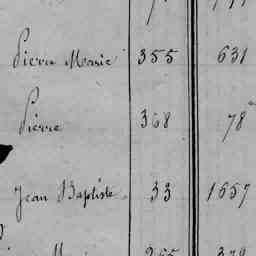 Pierre Marie 355 631
Pierre 368 78
Jean Baptiste 33 1657